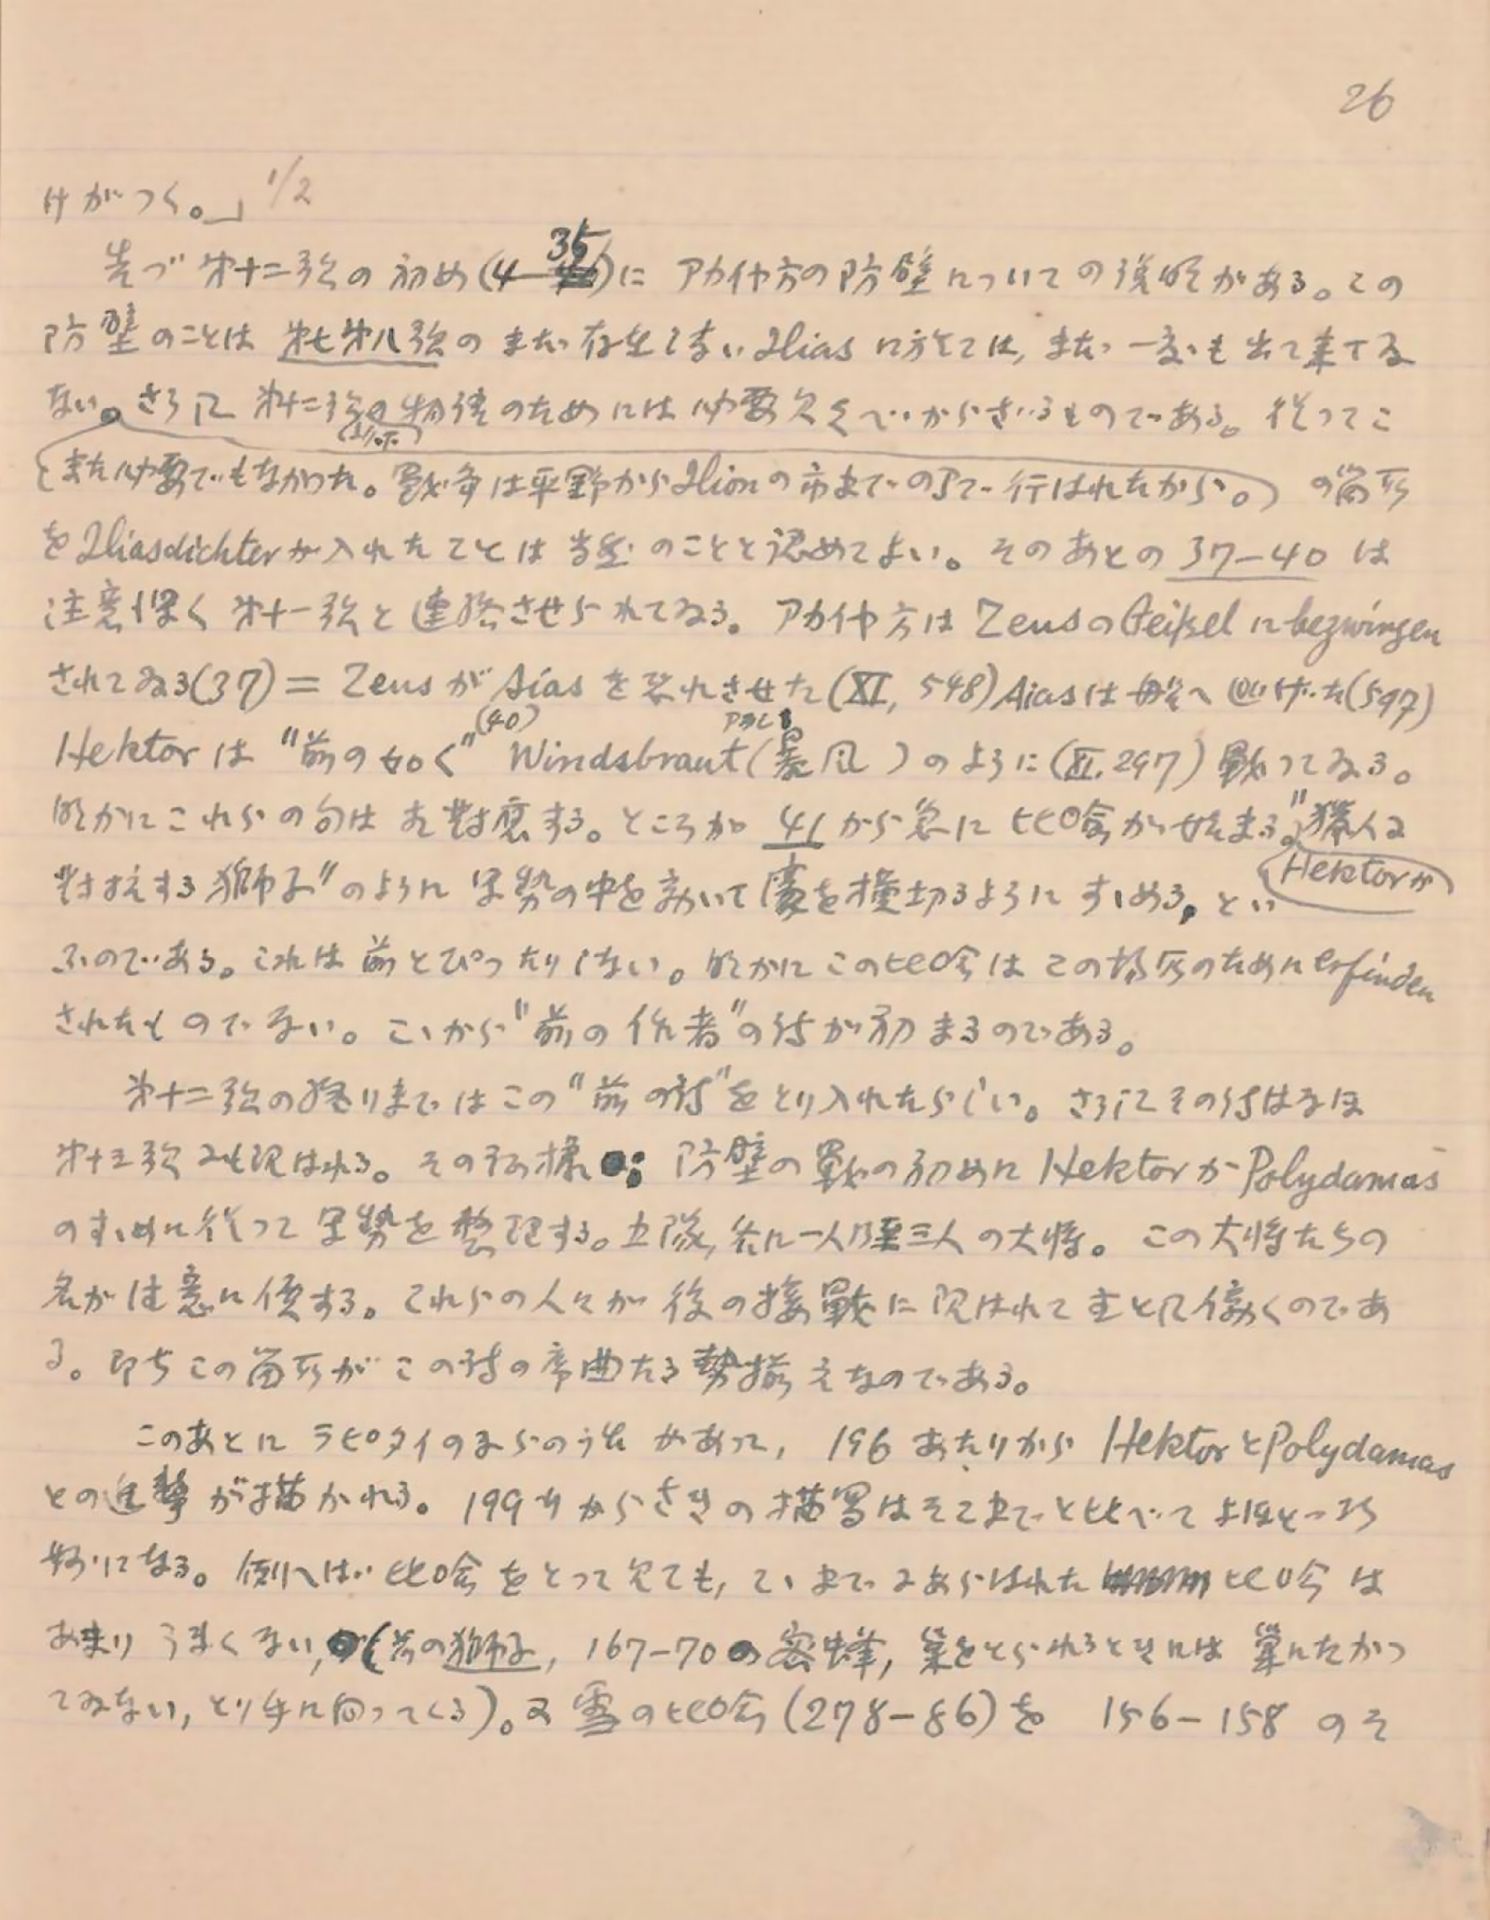 26
けがつく。」 1/2
先づ 第十二歌の初め(4—35)に アカイヤ方の防壁についての説明がある。この
防壁のことは 第七第八歌の まだ存在しない Ilias に於ては, まだ一度も出て来てゐ
ない。さらに 第十二歌の物語のためには必要欠くべからざるものである。従ってこ
(以下)
また必要でもなかった。戰爭は平野からIlionの市までの间で行はれたから。 の箇所
をIliasdichterが入れたことは当然のことと認めてよい。そのあとの 37—40 は
注意深く 第十一歌と連絡させられてゐる。アカイヤ方は ZeusのGeißel にbezwingen
されてゐる(37) = ZeusがAiasを恐れさせた(XI, 548) Aiasは船へ逃げた(597)
Hektor は "前の如く"(40) Windsbraut(暴風)のように(XI. 297) 戰ってゐる。
明かにこれらの句は 相對應する。ところが 41から急に 比喩が始まる。"猟人に
對抗する獅子"のように 軍勢の中を動いて 濠を横切るようにすゝめる, とい
Hektorが
ふのである。これは前とぴったりしない。明かにこの比喩はこの場所のためにerfinden
されたものでない。こゝから"前の作者"の詩が初まるのである。
第十二歌の終りまではこの"前の詩"をとり入れたらしい。さらにその詩はなほ
第十三歌にも現はれる。その模様: 防壁の戰の初めに HektorがPolydamas
のすゝめに従って 軍勢を整理する。五隊, 各に一人乃至三人の大将。この大将たちの
名が注意に値する。これらの人々が後の接戰に現はれて主として働くのであ
る。即ちこの箇所がこの詩の序曲たる勢揃えなのである。
このあとに ラピタイの があって, 196 あたりから HektorとPolydamas
との進撃が描かれる。199 からさきの描写はそこまでと比べて よほど巧
妙になる。例へば比喩をとって見ても, こゝまでにあらはれた 比喩は
あまりうまくない, (前の獅子, 167—70の密蜂, 巣をとられるときには 巣にたかつ
てゐない, とり手に向ってくる)。又 雪の比喩(278—86)を 156—158 のそ